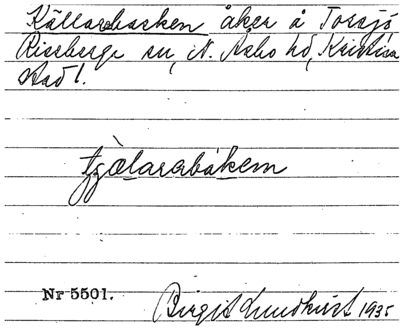 Källarebacken åker å Torsjö
Riseberga sn, N. Åsbo hd, Kristian
stad l.
tjälarabakem
Nr 5501.
Birgit Lundkvist 1935